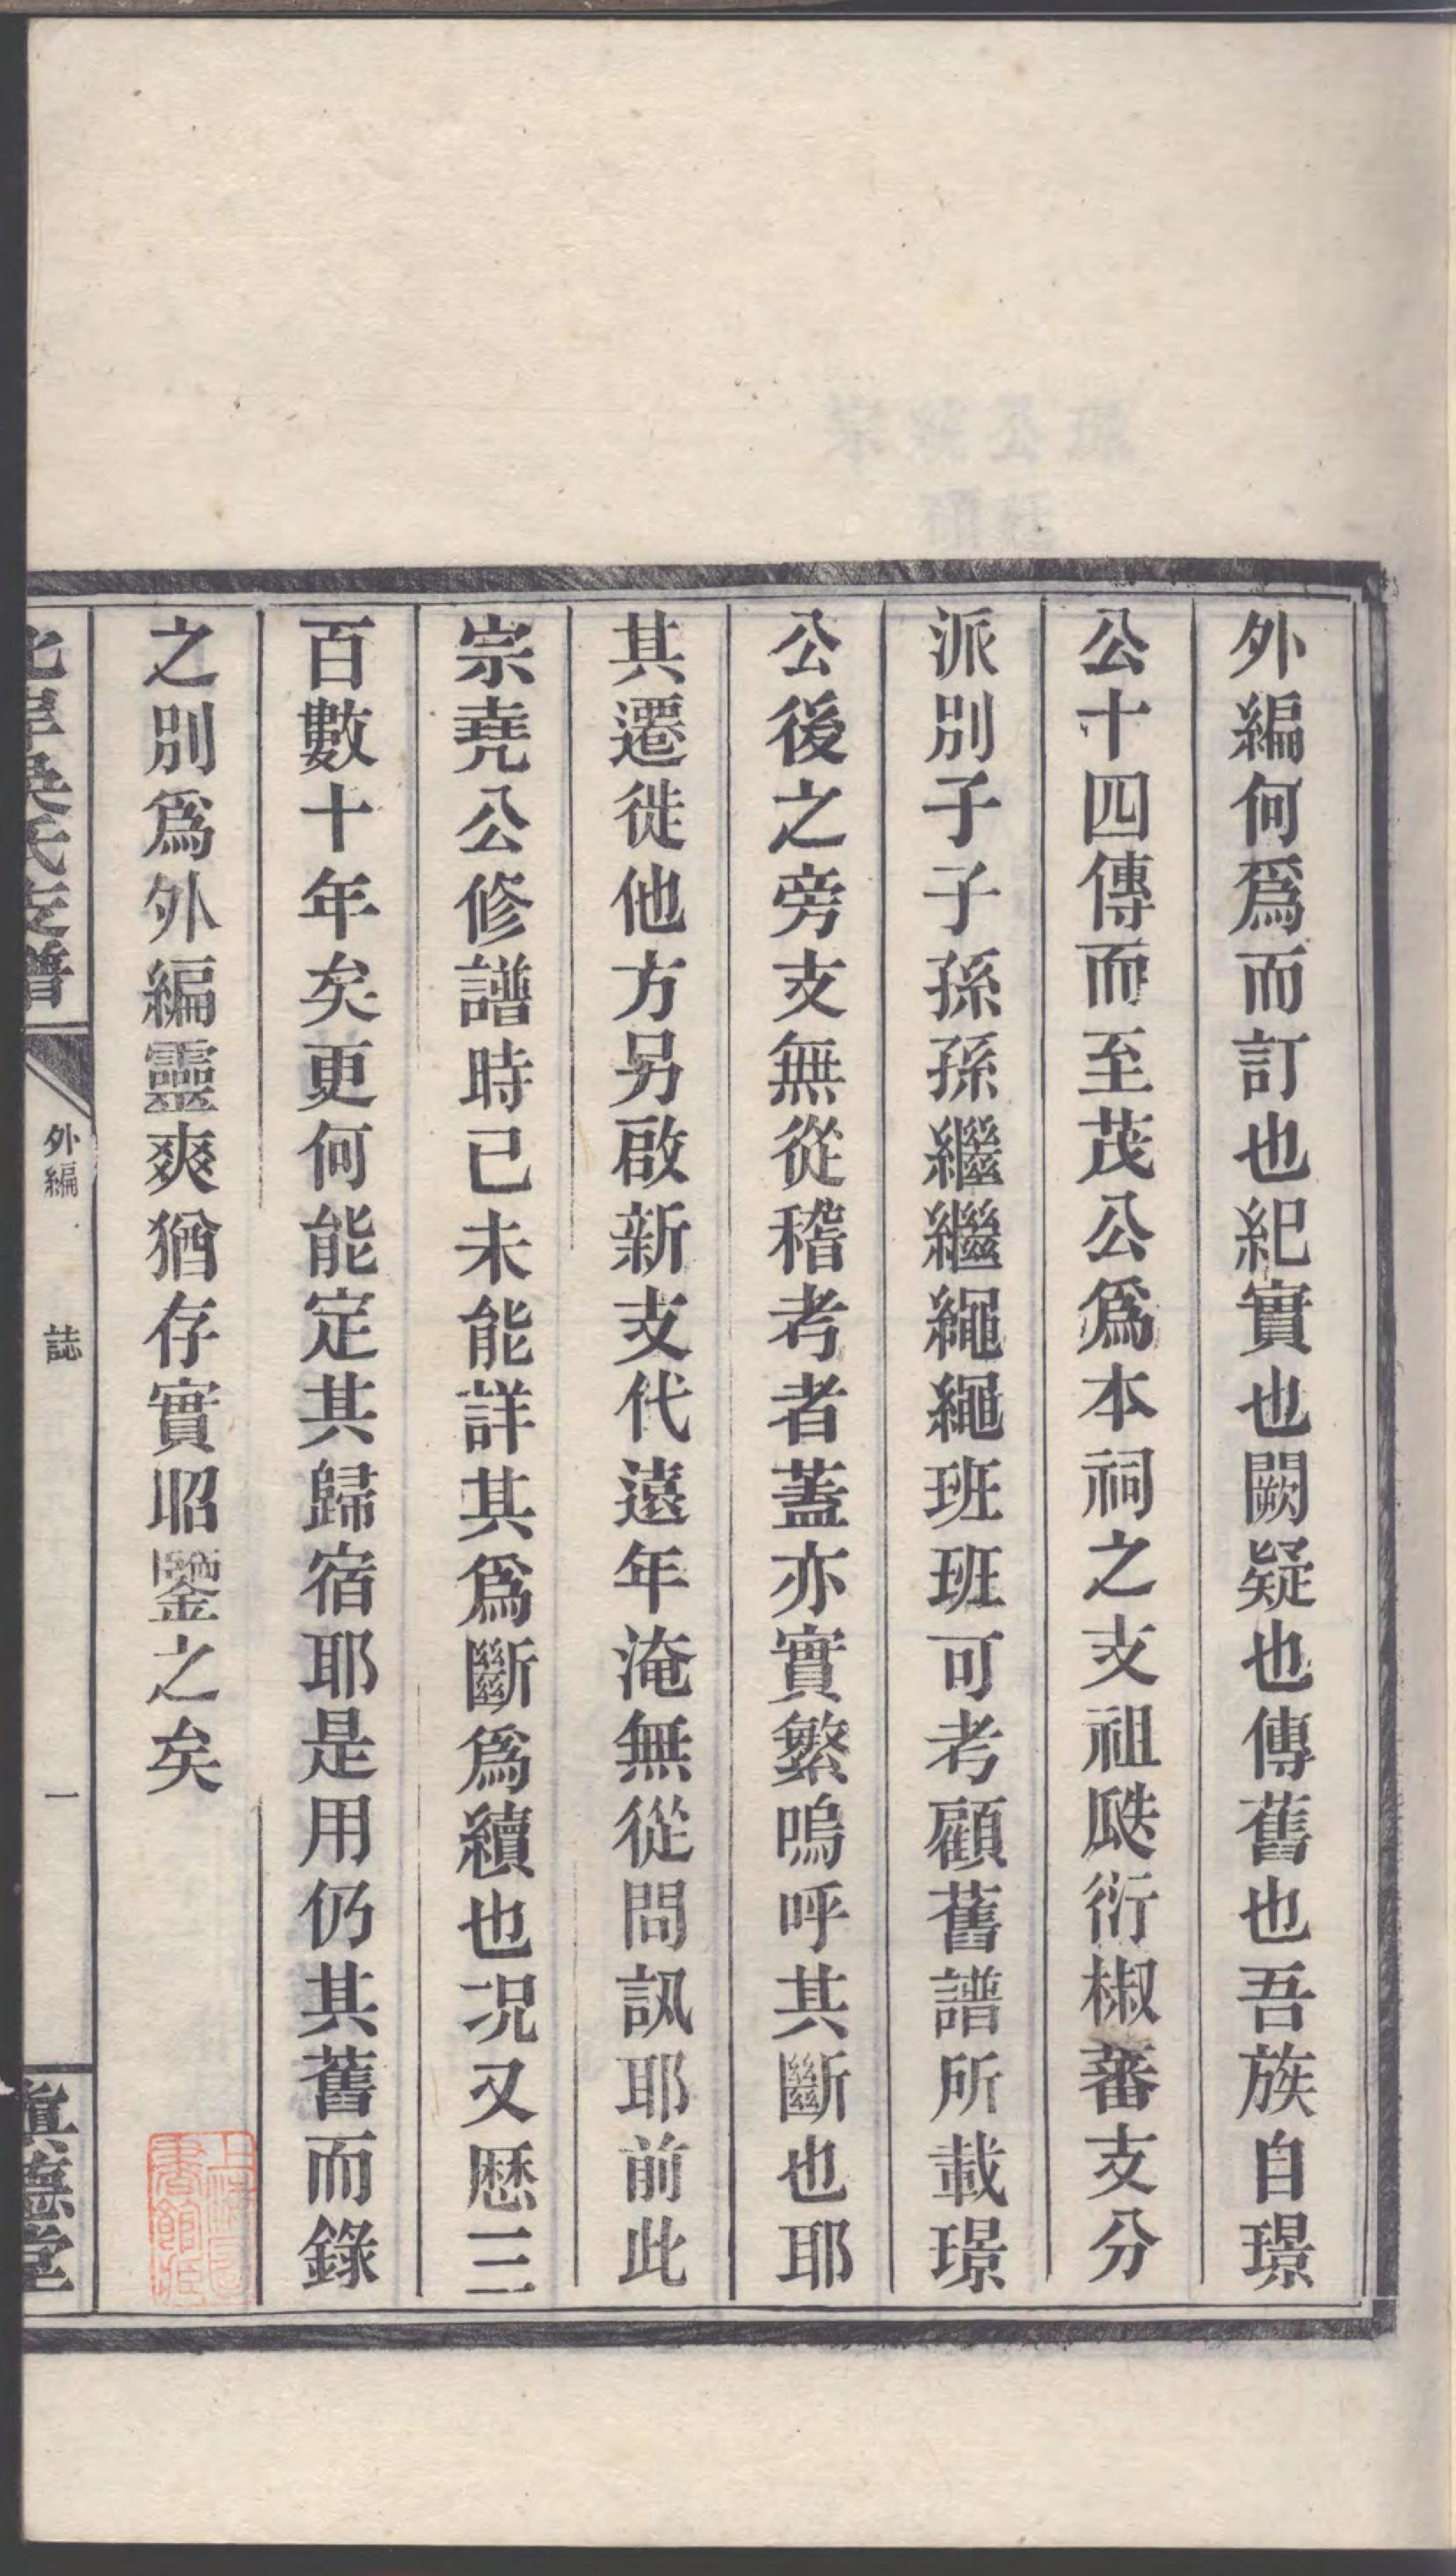 外編何爲而訂也紀實也闕疑也傳舊也吾族自璟
公十四傳而至茂公爲本祠之支祖瓞衍椒蕃支分
派別子子孫孫繼繼繩繩班班可考顧舊譜所載璟
公後之旁支無從稽考者蓋亦實繁嗚呼其斷也耶
其遷徙他方另啟新支代遠年淹無從問訊耶前此
宗堯公修譜時已未能詳其爲斷爲續也况又歷三
百數十年矣更何能定其歸宿耶是用仍其舊而錄
之別爲外編靈爽猶存實昭鑒之矣
北岸吳氏支譜
外編
誌
一